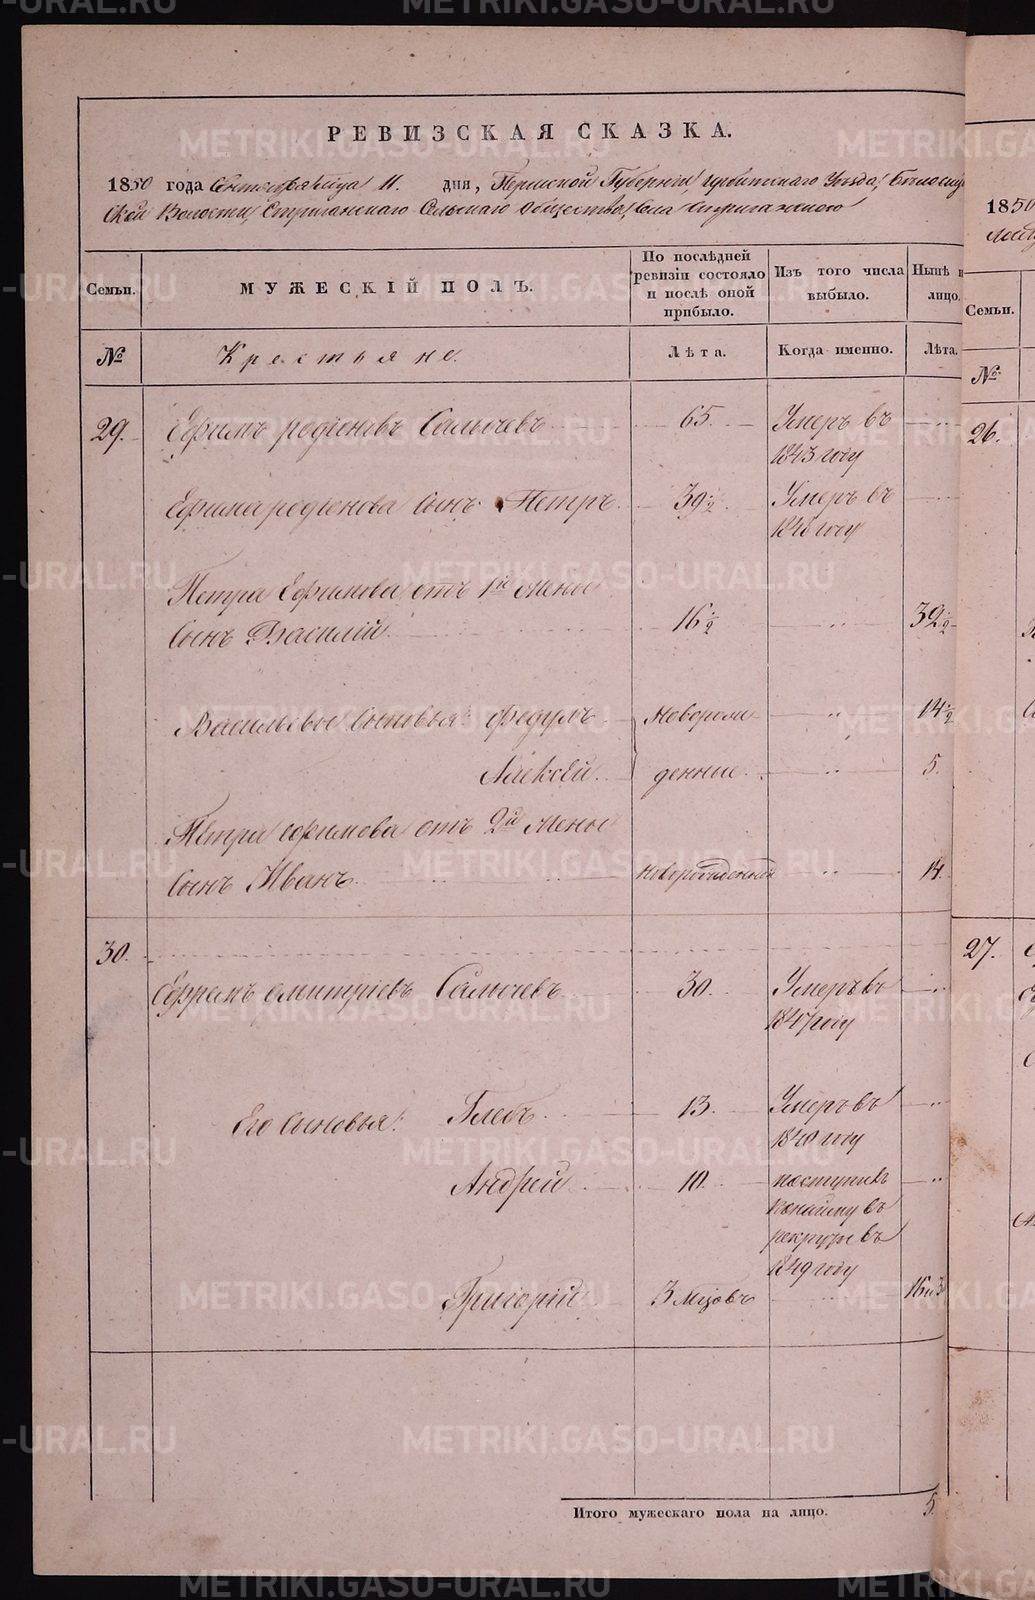 РЕВИЗСКАЯ СКАЗКА.
1850 года Сентября месяца 11. дня, Пермской Губернии Ирбитскаго Уезда,
ской Волости, Стриганскаго Сельскаго Общества, Села Стриганскаго
Семьи.
МУЖЕСКІЙ ПОЛЪ.
По послѣдней ревизіи состояло и послѣ оной прибыло.
Изъ того числа выбыло.
Нынѣ
лицо.
№
Крестьяне.
Лѣта.
Когда именно.
Лѣта.
29. Ефимъ родіоновъ Салычевъ 65. Умеръ въ
1843 году
Ефима родіонова сынъ Петръ. 39½ Умеръ въ
1848 году
Петра Ефимова отъ 1й жены
Сынъ Василій. 16½ 32½
Васильевы сыновья: Федулъ Новорож 14½
Алексѣй. денные. 5.
Петра ефимова отъ 2й жены
Сынъ Иванъ. новорожденный 14.
30.
Ефремъ дмитріевъ Салычевъ 30. Умеръ въ
1847 году
Его сыновья: Глебъ 13. Умеръ въ
1840 году
Андрей 10. поступилъ
по найму въ
рекруты въ
1849 году
Григорій 3 мѣсяцовъ 16 и 3
Итого мужескаго пола на лицо. 5.
1850
Семьи.
№
26.
27.
METRIKI.GASO-URAL.RU